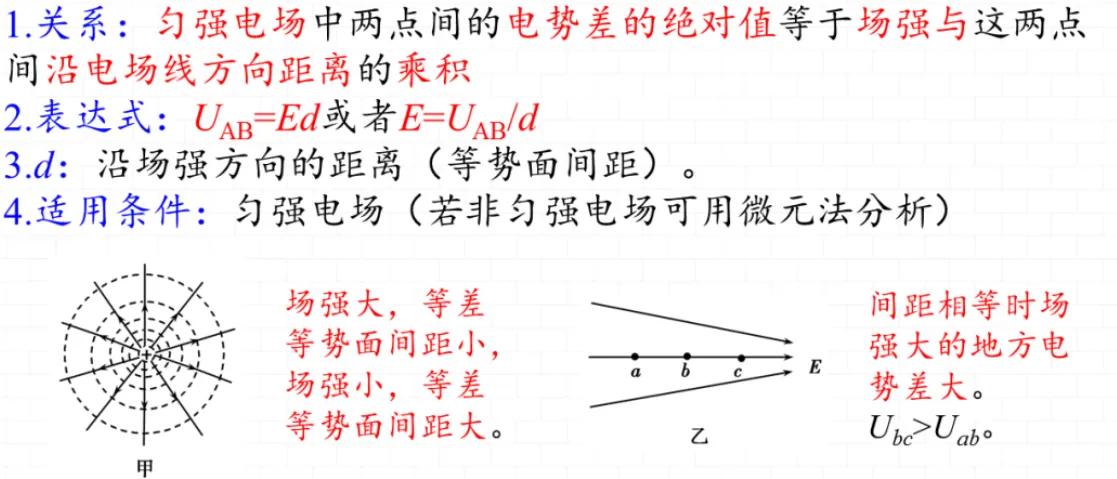 1.关系：匀强电场中两点间的电势差的绝对值等于场强与这两点
间沿电场线方向距离的乘积
2.表达式：U_AB=Ed或者E=U_AB/d
3.d：沿场强方向的距离（等势面间距）。
4.适用条件：匀强电场（若非匀强电场可用微元法分析）
场强大，等差
等势面间距小，
场强小，等差
等势面间距大。
甲
a b c E
乙
间距相等时场
强大的地方电
势差大。
U_bc>U_ab。